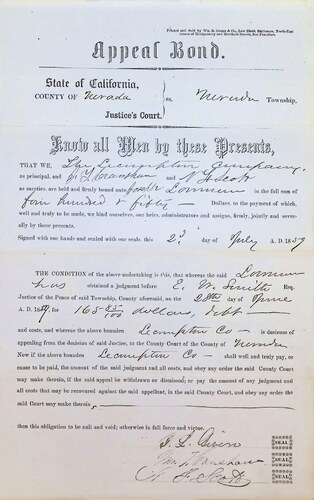 Printed and Sold by Wm. B. Cooke & Co., Law Blank Stationers, North-East
Corner of Montgomery and Merchant Streets, San Francisco.
Appeal Bond.
State of California,
COUNTY OF Nevada ss. Nevada Township,
Justice's Court.
Know all Men by these Presents,
THAT WE, The Lecompton Company
as principal, and and N. L. Scott
as sureties are held and firmly bound unto in the full sum of
four hundred & fifty — Dollars, to the payment of which,
well and truly to be made, we bind ourselves, our heirs, administrators and assigns, firmly, jointly and seve-
rally by these presents.
Signed with our hands and sealed with our seals, this 2d day of July A. D. 1859
THE CONDITION of the above undertaking is this, that whereas the said
has obtained a judgment before E. W. Smith Esq.
Justice of the Peace of said Township, County aforesaid, on the 28th day of June
A. D. 1859, for 165 dollars, debt —
and costs, and whereas the above bounden Lecompton Co — is desirous of
appealing from the decision of said Justice, to the County Court of the County of Nevada
Now if the above bounden Lecompton Co — shall well and truly pay, or
cause to be paid, the amount of the said judgment and all costs, and obey any order the said County Court
may make therein, if the said appeal be withdrawn or dismissed, or pay the amount of any judgment
and all costs that may be recovered against the said appellant, in the said County Court, and obey any order the
said Court may make therein,
then this obligation to be null and void; otherwise in full force and virtue.
SEAL
SEAL
N. L. Scott SEAL